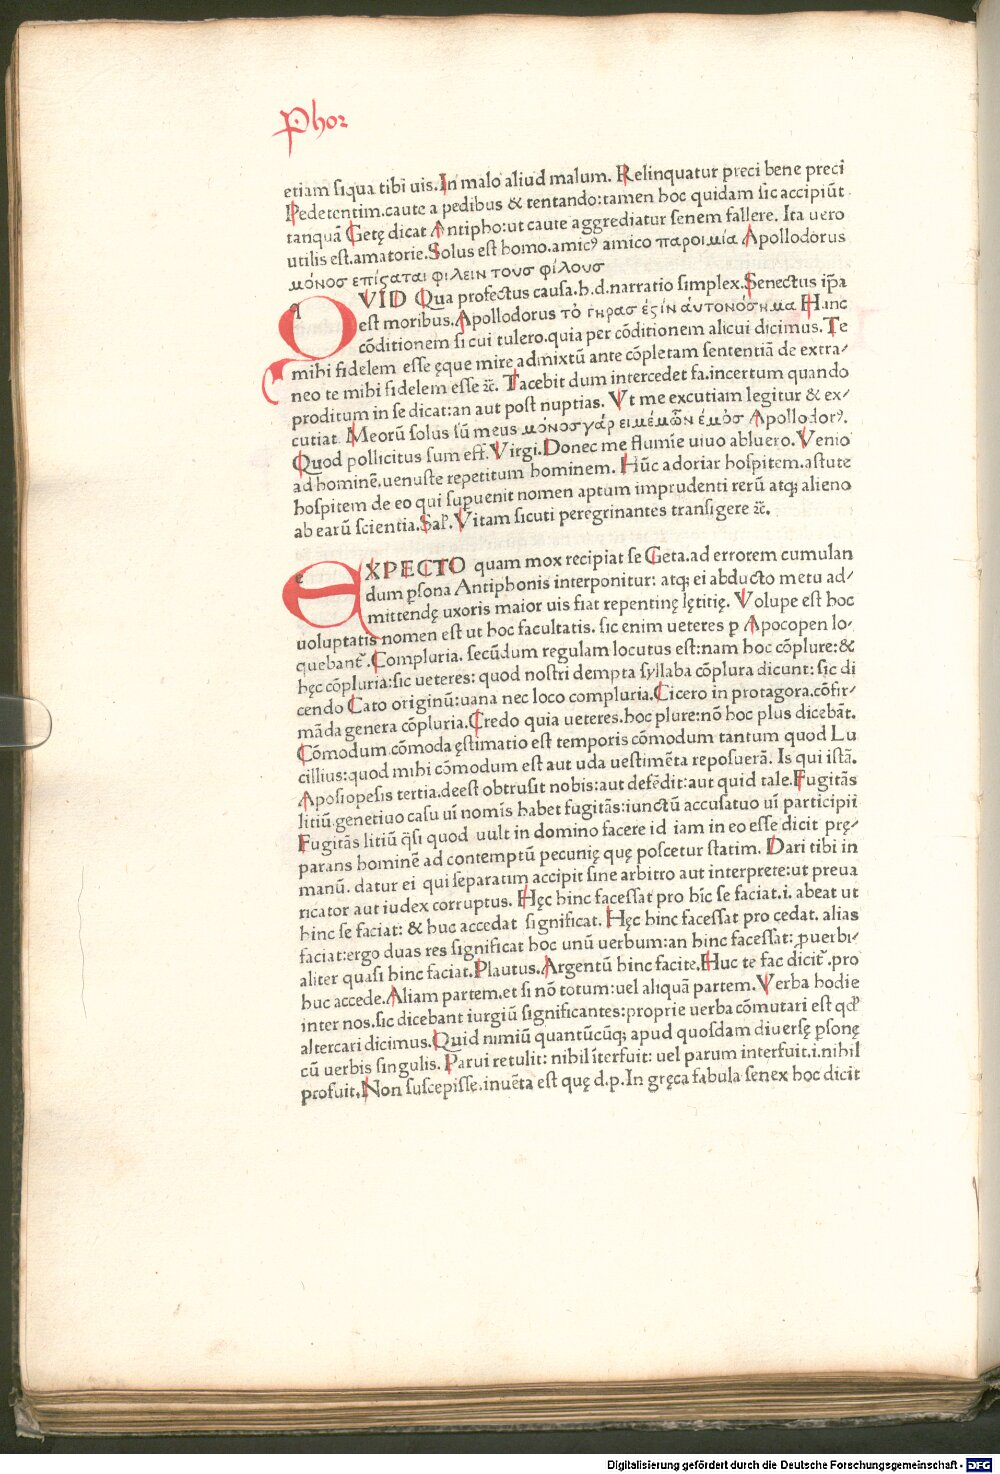 Phor
etiam siqua tibi uis. In malo aliud malum. Relinquatur preci bene preci
Pedetentim. caute a pedibus & tentando: tamen hoc quidam sic accipiūt
tanquā Getę dicat Antipho: ut caute aggrediatur senem fallere. Ita uero
utilis est. amatorie. Solus est homo. amicꝰ amico παροιμία Apollodorus
μόνοσ επίςαται φιλειν τουσ φίλουσ
QVID Qua profectus causa. h. d. narratio simplex. Senectus ip̄a
est moribus. Apollodorus τὸ γηρασ ἐςίν ἀυτονόσημα Hinc
cōditionem si cui tulero. quia per cōditionem alicui dicimus. Te
mihi fidelem esse ęque mire admixtū ante cōpletam sententiā de extra/
neo te mihi fidelem esse ⁊c̄. Tacebit dum intercedet fa. incertum quando
proditum in se dicat: an aut post nuptias. Vt me excutiam legitur & ex/
cutiat. Meorū solus sū meus μόνοσ γάρ ειμέμῶν ἐμὸσ Apollodorꝰ.
Quod pollicitus sum est. Virgi. Donec me flumīe uiuo abluero. Venio
ad hominē. uenuste repetitum hominem. Hūc adoriar hospitem. astute
hospitem de eo qui supuenit nomen aptum imprudenti rerū atq; alieno
ab earū scientia. Sal̄. Vitam sicuti peregrinantes transigere ⁊c̄.
EXPECTO quam mox recipiat se Geta. ad errorem cumulan
dum ꝑsona Antiphonis interponitur: atq; ei abducto metu ad/
mittendę uxoris maior uis fiat repentinę lętitię. Volupe est hoc
uoluptatis nomen est ut hoc facultatis. sic enim ueteres ꝑ Apocopen lo/
quebant̄. Compluria. secūdum regulam locutus est: nam hoc cōplure: &
hęc cōpluria: sic ueteres: quod nostri dempta syllaba cōplura dicunt: sic di
cendo Cato originū: uana nec loco compluria. Cicero in protagora. cōfir/
māda genera cōpluria. Credo quia ueteres. hoc plure: nō hoc plus dicebāt.
Cōmodum. cōmoda ęstimatio est temporis cōmodum tantum quod Lu
cillius: quod mihi cōmodum est aut uda uestimēta reposuerā. Is qui istā.
Aposiopesis tertia. deest obtrusit nobis: aut defēdit: aut quid tale. Fugitās
litiū. genetiuo casu uī nomīs habet fugitās: iunctū accusatuo uī participii
Fugitās litiū q̄si quod uult in domino facere id iam in eo esse dicit prę/
parans hominē ad contemptū pecunię quę poscetur statim. Dari tibi in
manū. datur ei qui separatim accipit sine arbitro aut interprete: ut preua
ricator aut iudex corruptus. Hęc hinc facessat pro hīc se faciat. i. abeat ut
hinc se faciat: & huc accedat significat. Hęc hinc facessat pro cedat. alias
faciat: ergo duas res significat hoc unū uerbum: an hinc facessat: ꝓuerbi/
aliter quasi hinc faciat. Plautus. Argentū hinc facite. Huc te fac dicit̄. pro
huc accede. Aliam partem. et si nō totum: uel aliquā partem. Verba hodie
inter nos. sic dicebant iurgiū significantes: proprie uerba cōmutari est qđ
altercari dicimus. Quid nimiū quantūcūq; apud quosdam diuersę ꝑsonę
cū uerbis singulis. Parui retulit: nihil īterfuit: uel parum interfuit. i. nihil
profuit. Non suscepisse. inuēta est quę d. p. In gręca fabula senex hoc dicit
Digitalisierung gefördert durch die Deutsche Forschungsgemeinschaft - DFG